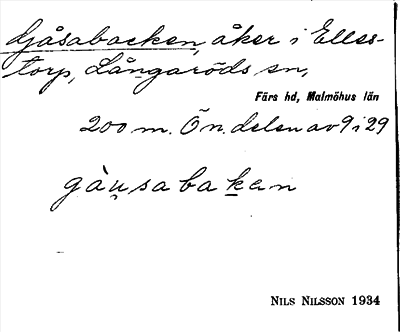 Gåsabacken, åker i Elles-
torp, Långaröds sn,
Färs hd, Malmöhus län
200 m. Ö n. delen av 9 i 29
gàu̯sabak̲en
NILS NILSSON 1934